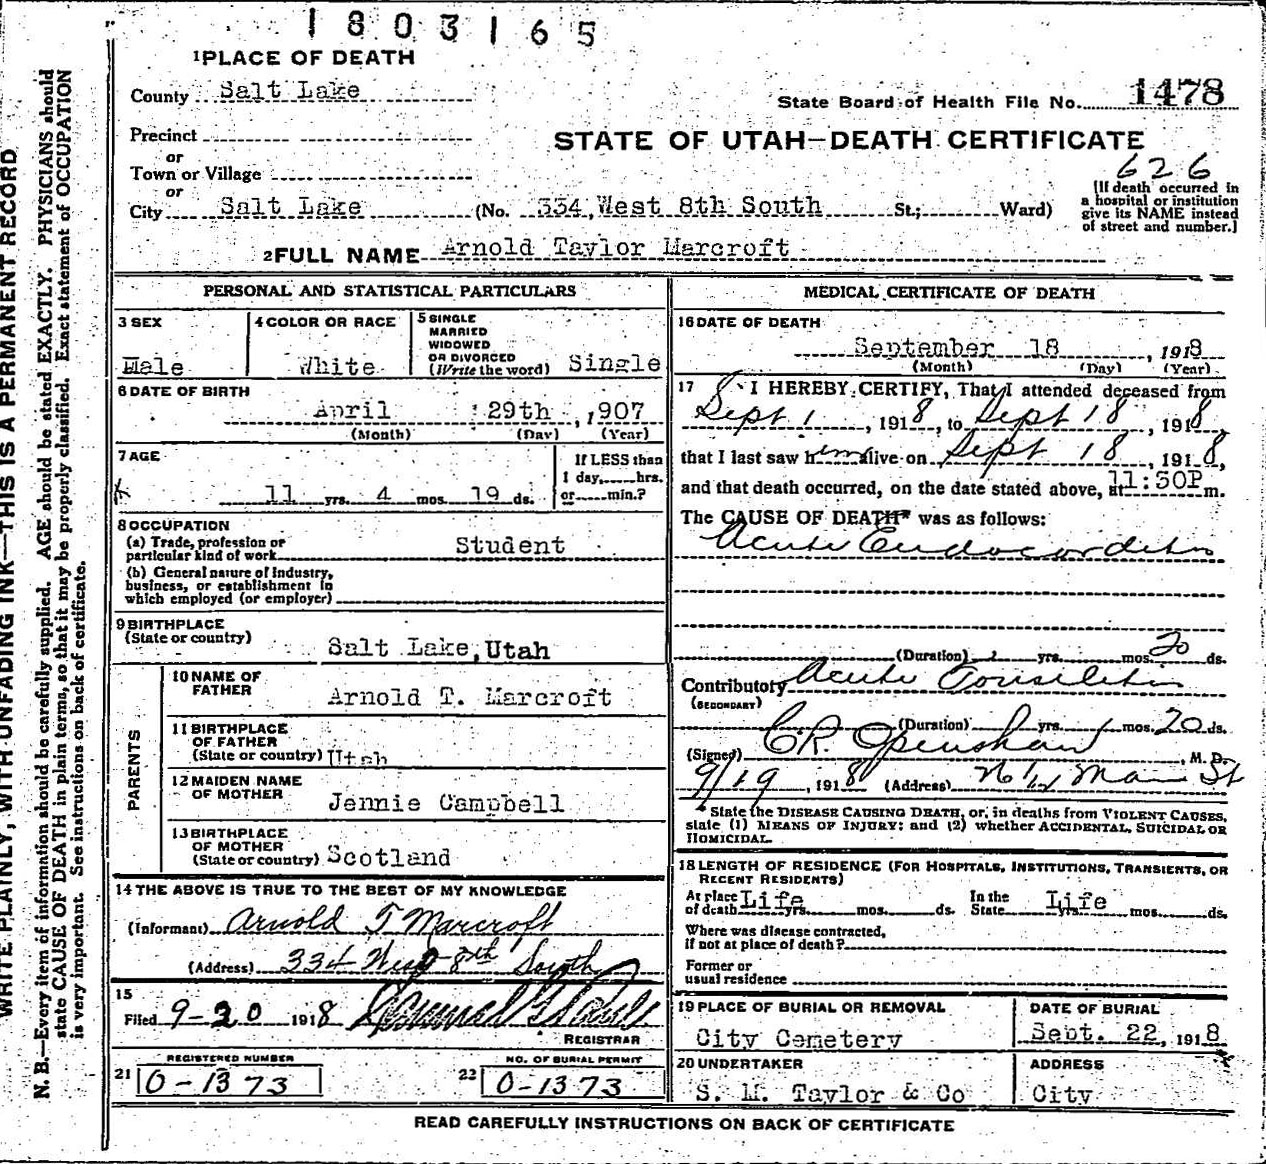 1803165
1 PLACE OF DEATH
County Salt Lake
State Board of Health File No. 1478
Precinct
or
STATE OF UTAH—DEATH CERTIFICATE
Town or Village
or
626
City Salt Lake (No. 334, West 8th South St.; Ward)
[If death occurred in
a hospital or institution
give its NAME instead
of street and number.]
2 FULL NAME Arnold Taylor Marcroft
PERSONAL AND STATISTICAL PARTICULARS
3 SEX
Male
4 COLOR OR RACE
White
5 SINGLE
MARRIED
WIDOWED
OR DIVORCED
(Write the word) Single
6 DATE OF BIRTH
April 29th, 1907
(Month) (Day) (Year)
7 AGE
11 yrs. 4 mos. 19 ds.
If LESS than
1 day, hrs.
or min.?
8 OCCUPATION
(a) Trade, profession or
particular kind of work Student
(b) General nature of industry,
business, or establishment in
which employed (or employer)
9 BIRTHPLACE
(State or country) Salt Lake, Utah
PARENTS
10 NAME OF
FATHER Arnold T. Marcroft
11 BIRTHPLACE
OF FATHER
(State or country) Utah
12 MAIDEN NAME
OF MOTHER Jennie Campbell
13 BIRTHPLACE
OF MOTHER
(State or country) Scotland
14 THE ABOVE IS TRUE TO THE BEST OF MY KNOWLEDGE
(Informant) Arnold T Marcroft
(Address) 334 West 8th South
15
Filed 9-20 1918
REGISTRAR
REGISTERED NUMBER
21 0-1373
NO. OF BURIAL PERMIT
22 0-1373
MEDICAL CERTIFICATE OF DEATH
16 DATE OF DEATH
September 18, 1918
(Month) (Day) (Year)
17 I HEREBY CERTIFY, That I attended deceased from
Sept 1, 1918, to Sept 18, 1918,
that I last saw him alive on Sept 18, 1918,
and that death occurred, on the date stated above, at 11:50P m.
The CAUSE OF DEATH* was as follows:
Acute Endocarditis
(Duration) yrs. mos. 20 ds.
Contributory Acute Tonsilitis
(SECONDARY)
(Duration) yrs. mos. 20 ds.
(Signed) C.R. Openshaw, M. D.
9/19, 1918 (Address) Main St
* State the DISEASE CAUSING DEATH, or, in deaths from VIOLENT CAUSES,
state (1) MEANS OF INJURY; and (2) whether ACCIDENTAL, SUICIDAL OR
HOMICIDAL.
18 LENGTH OF RESIDENCE (FOR HOSPITALS, INSTITUTIONS, TRANSIENTS, OR
RECENT RESIDENTS)
At place
of death Life yrs. mos. ds.
In the
State Life yrs. mos. ds.
Where was disease contracted,
if not at place of death?
Former or
usual residence
19 PLACE OF BURIAL OR REMOVAL
City Cemetery
DATE OF BURIAL
Sept. 22, 1918
20 UNDERTAKER
S. M. Taylor & Co
ADDRESS
City
READ CAREFULLY INSTRUCTIONS ON BACK OF CERTIFICATE
WRITE PLAINLY, WITH UNFADING INK—THIS IS A PERMANENT RECORD
N. B.—Every item of information should be carefully supplied. AGE should be stated EXACTLY. PHYSICIANS should
state CAUSE OF DEATH in plain terms, so that it may be properly classified. Exact statement of OCCUPATION
is very important. See instructions on back of certificate.